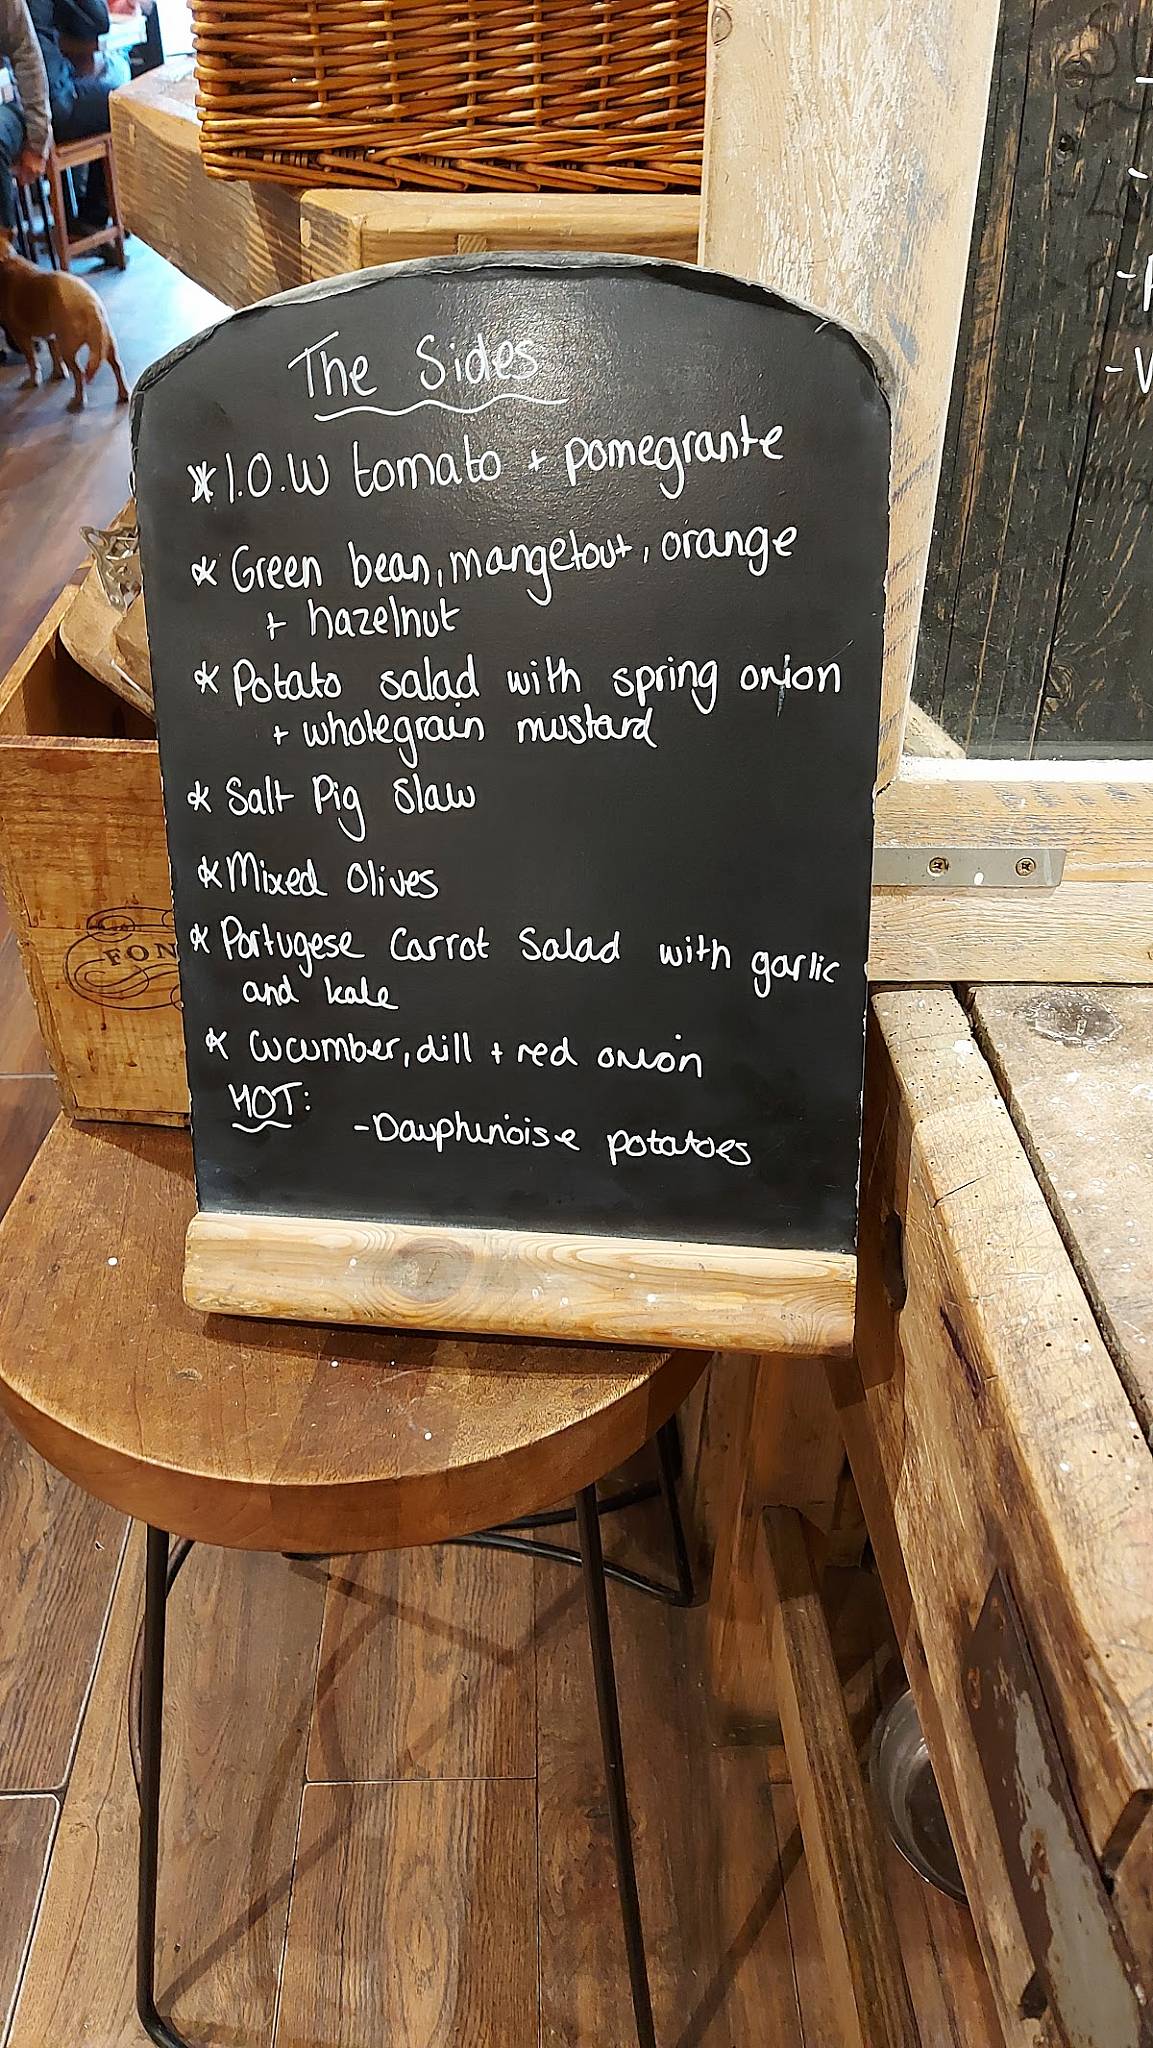 The Sides
* I.O.W tomato + pomegrante
* Green bean, mangetout, orange
+ hazelnut
* Potato salad with spring onion
+ wholegrain mustard
* Salt Pig Slaw
* Mixed Olives
* Portugese Carrot Salad with garlic
and kale
* Cucumber, dill + red onion
HOT:
- Dauphinoise potatoes
FON